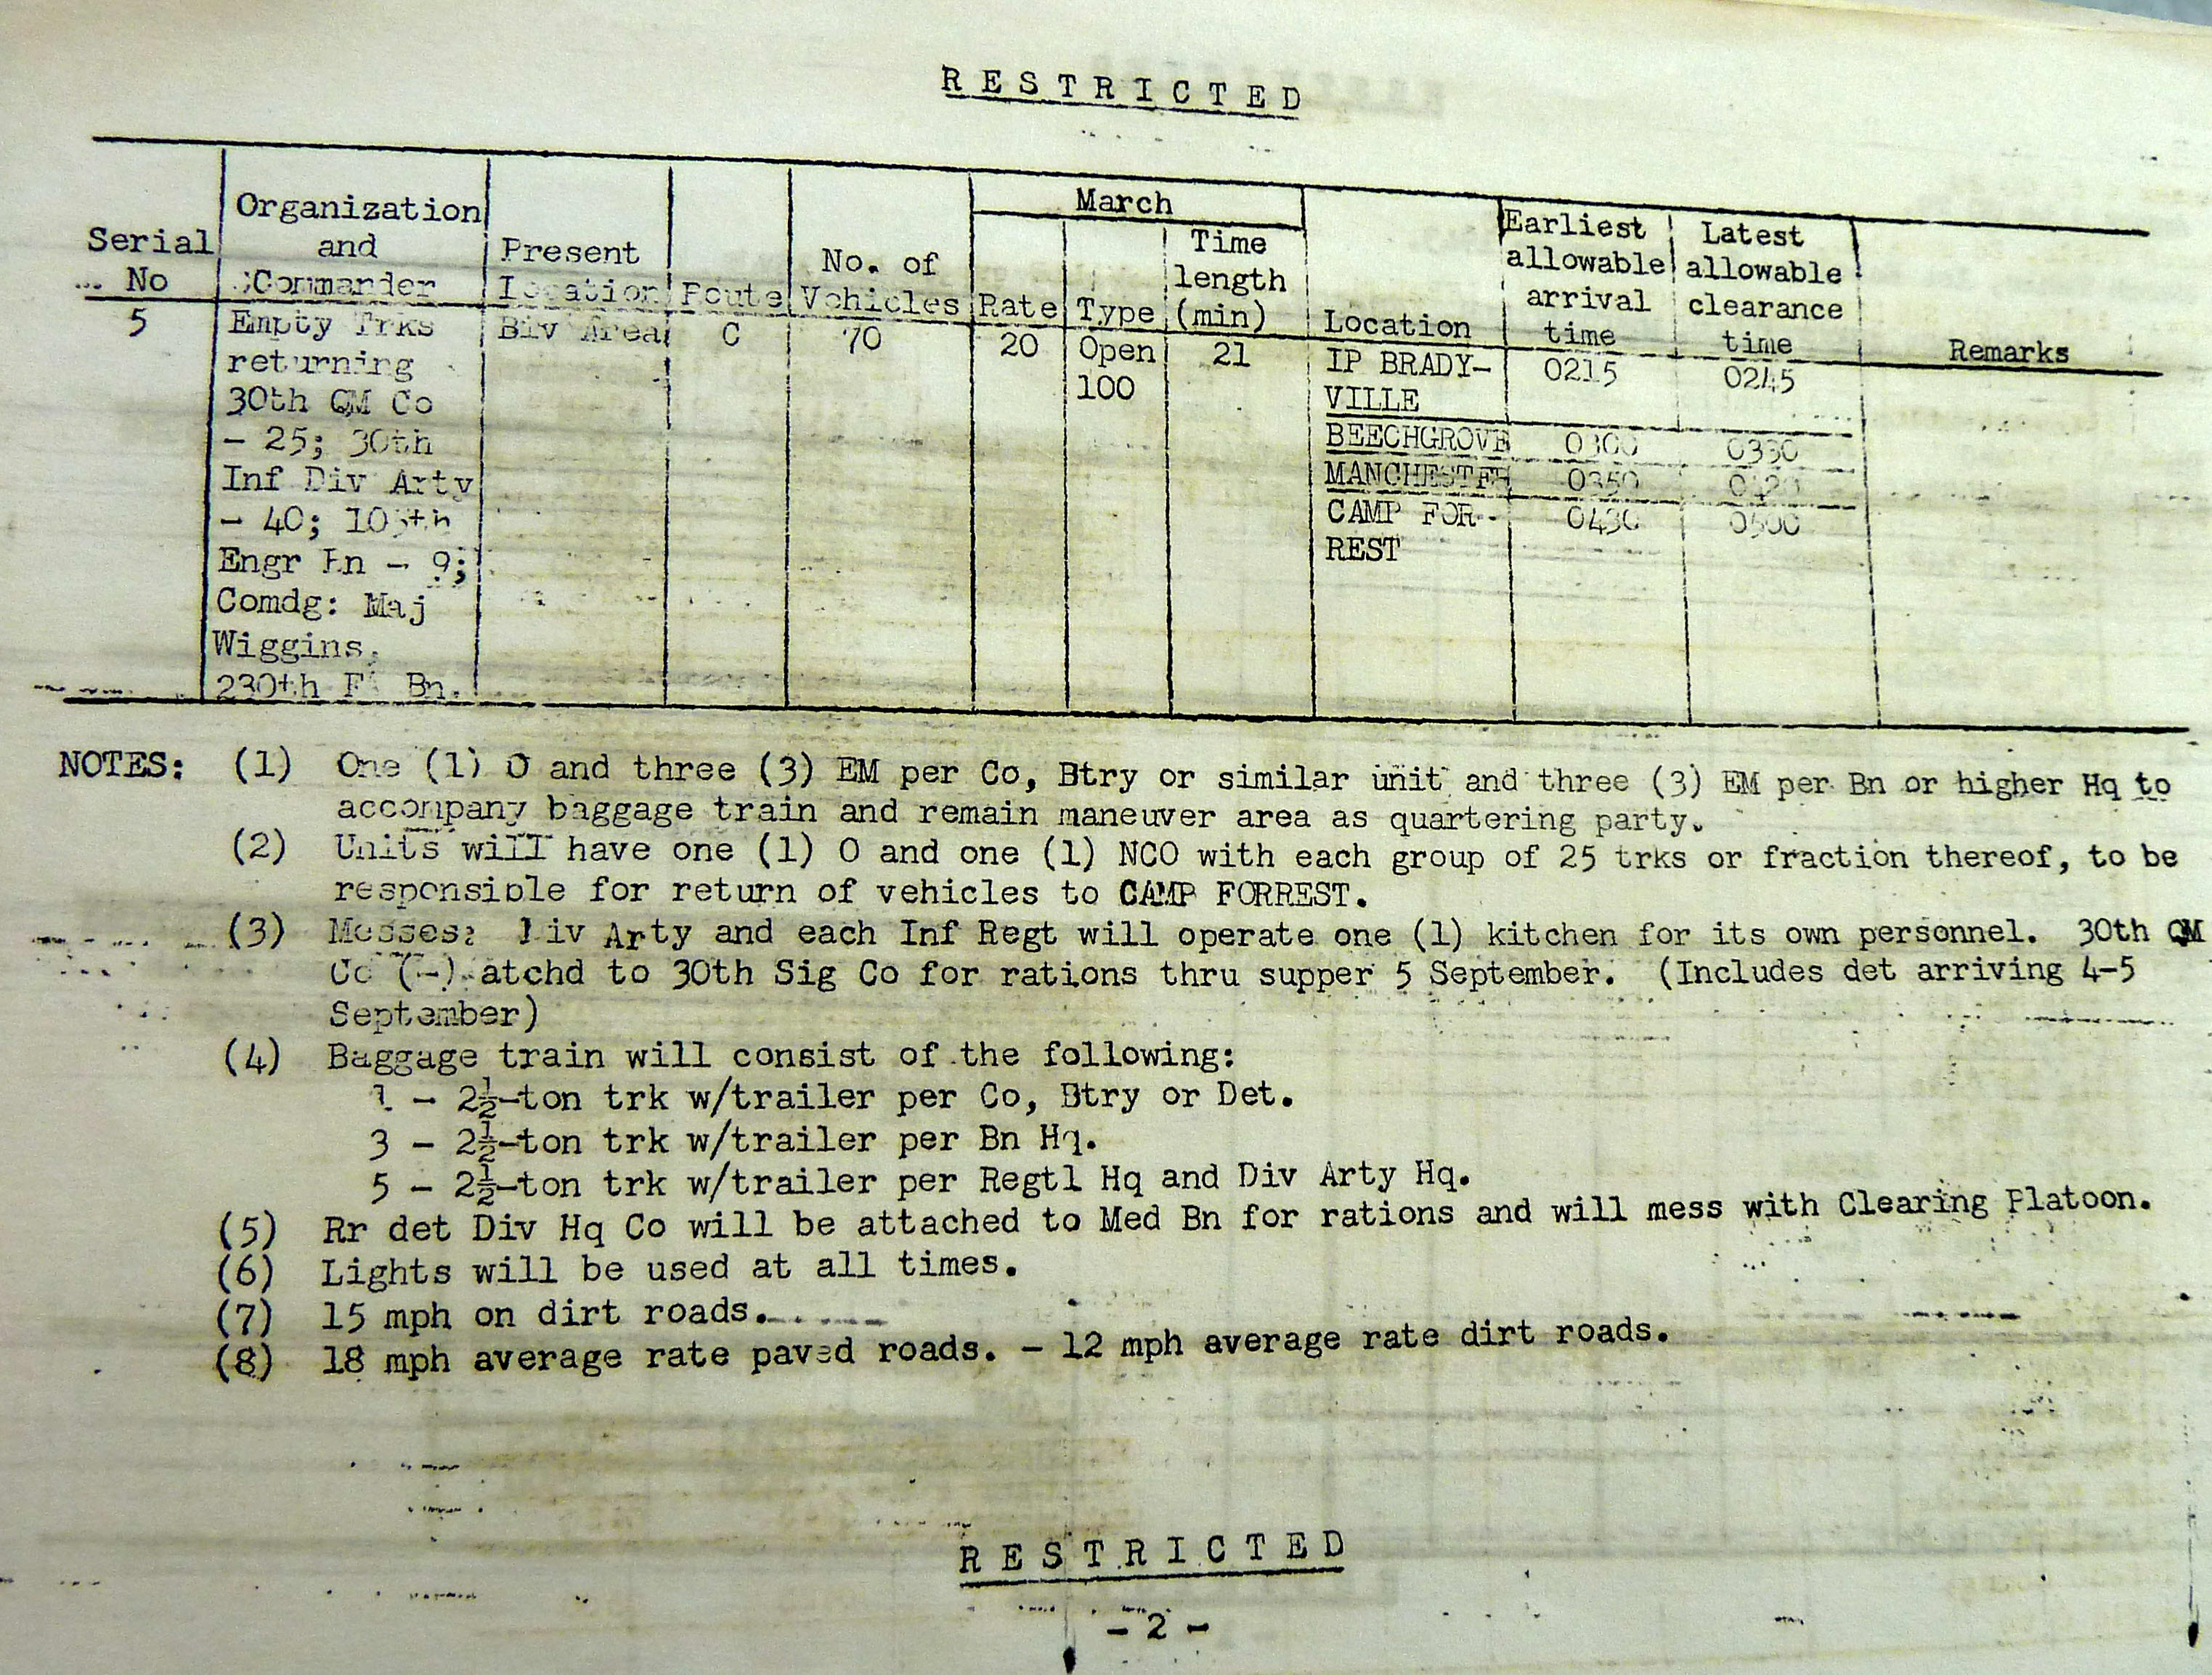 RESTRICTED
March
Serial No
Organization and Commander
Present Location
Route
No. of Vehicles
Rate
Type
Time length (min)
Location
Earliest allowable arrival time
Latest allowable clearance time
Remarks
5
Empty Trks
returning
30th QM Co
- 25; 30th
Inf Div Arty
- 40; 105th
Engr Bn - 9;
Comdg: Maj
Wiggins,
230th FA Bn.
Biv Area
C
70
20
Open
100
21
IP BRADY-
VILLE
0215
0245
BEECHGROVE 0300 0330
MANCHESTER 0350
CAMP FOR-
REST
0430 0500
NOTES: (1) One (1) O and three (3) EM per Co, Btry or similar unit and three (3) EM per Bn or higher Hq to
accompany baggage train and remain maneuver area as quartering party.
(2) Units will have one (1) O and one (1) NCO with each group of 25 trks or fraction thereof, to be
responsible for return of vehicles to CAMP FORREST.
(3) Messes: Div Arty and each Inf Regt will operate one (1) kitchen for its own personnel. 30th QM
Co (-) atchd to 30th Sig Co for rations thru supper 5 September. (Includes det arriving 4-5
September)
(4) Baggage train will consist of the following:
1 - 2½-ton trk w/trailer per Co, Btry or Det.
3 - 2½-ton trk w/trailer per Bn Hq.
5 - 2½-ton trk w/trailer per Regtl Hq and Div Arty Hq.
(5) Rr det Div Hq Co will be attached to Med Bn for rations and will mess with Clearing Platoon.
(6) Lights will be used at all times.
(7) 15 mph on dirt roads.
(8) 18 mph average rate paved roads. - 12 mph average rate dirt roads.
RESTRICTED
- 2 -